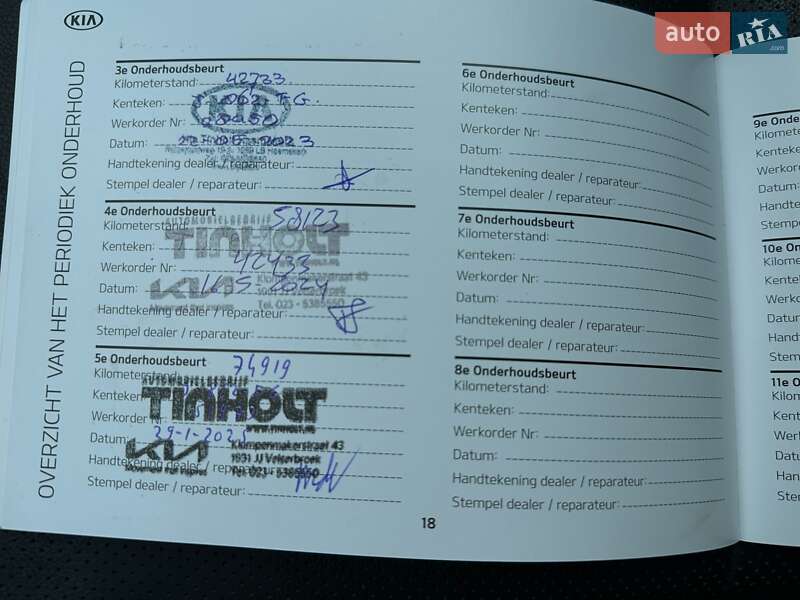 KIA
auto RIA.com
OVERZICHT VAN HET PERIODIEK ONDERHOUD
3e Onderhoudsbeurt
Kilometerstand: 42733
Kenteken:
Werkorder Nr:
Datum: 2023
Handtekening dealer / reparateur:
Stempel dealer / reparateur:
4e Onderhoudsbeurt
AUTOMOBIELBEDRIJF
Kilometerstand: 58123
TINHOLT
Kenteken:
Werkorder Nr: 42433
Klompenmakerstraat 43
Datum: 2024
KIA
Tel. 023 - 5385550
Handtekening dealer / reparateur:
Stempel dealer / reparateur:
5e Onderhoudsbeurt
Kilometerstand: 74919
AUTOMOBIELBEDRIJF
Kenteken:
TINHOLT
Werkorder Nr:
WWW.TINHOLT.NL
Datum: 29-1-2025
KIA
Klompenmakerstraat 43
1991 JJ Velserbroek
Movement that inspires
Tel. 023 - 5385550
Handtekening dealer / reparateur:
Stempel dealer / reparateur:
6e Onderhoudsbeurt
Kilometerstand:
Kenteken:
Werkorder Nr:
Datum:
Handtekening dealer / reparateur:
Stempel dealer / reparateur:
7e Onderhoudsbeurt
Kilometerstand:
Kenteken:
Werkorder Nr:
Datum:
Handtekening dealer / reparateur:
Stempel dealer / reparateur:
8e Onderhoudsbeurt
Kilometerstand:
Kenteken:
Werkorder Nr:
Datum:
Handtekening dealer / reparateur:
Stempel dealer / reparateur:
9e Onde
Kilometer
Kenteken
Werkor
Datum:
Handte
Stempe
10e On
Kilome
Kente
Werk
Datu
Hand
Stem
11e O
Kilo
Ken
We
Da
Ha
St
18